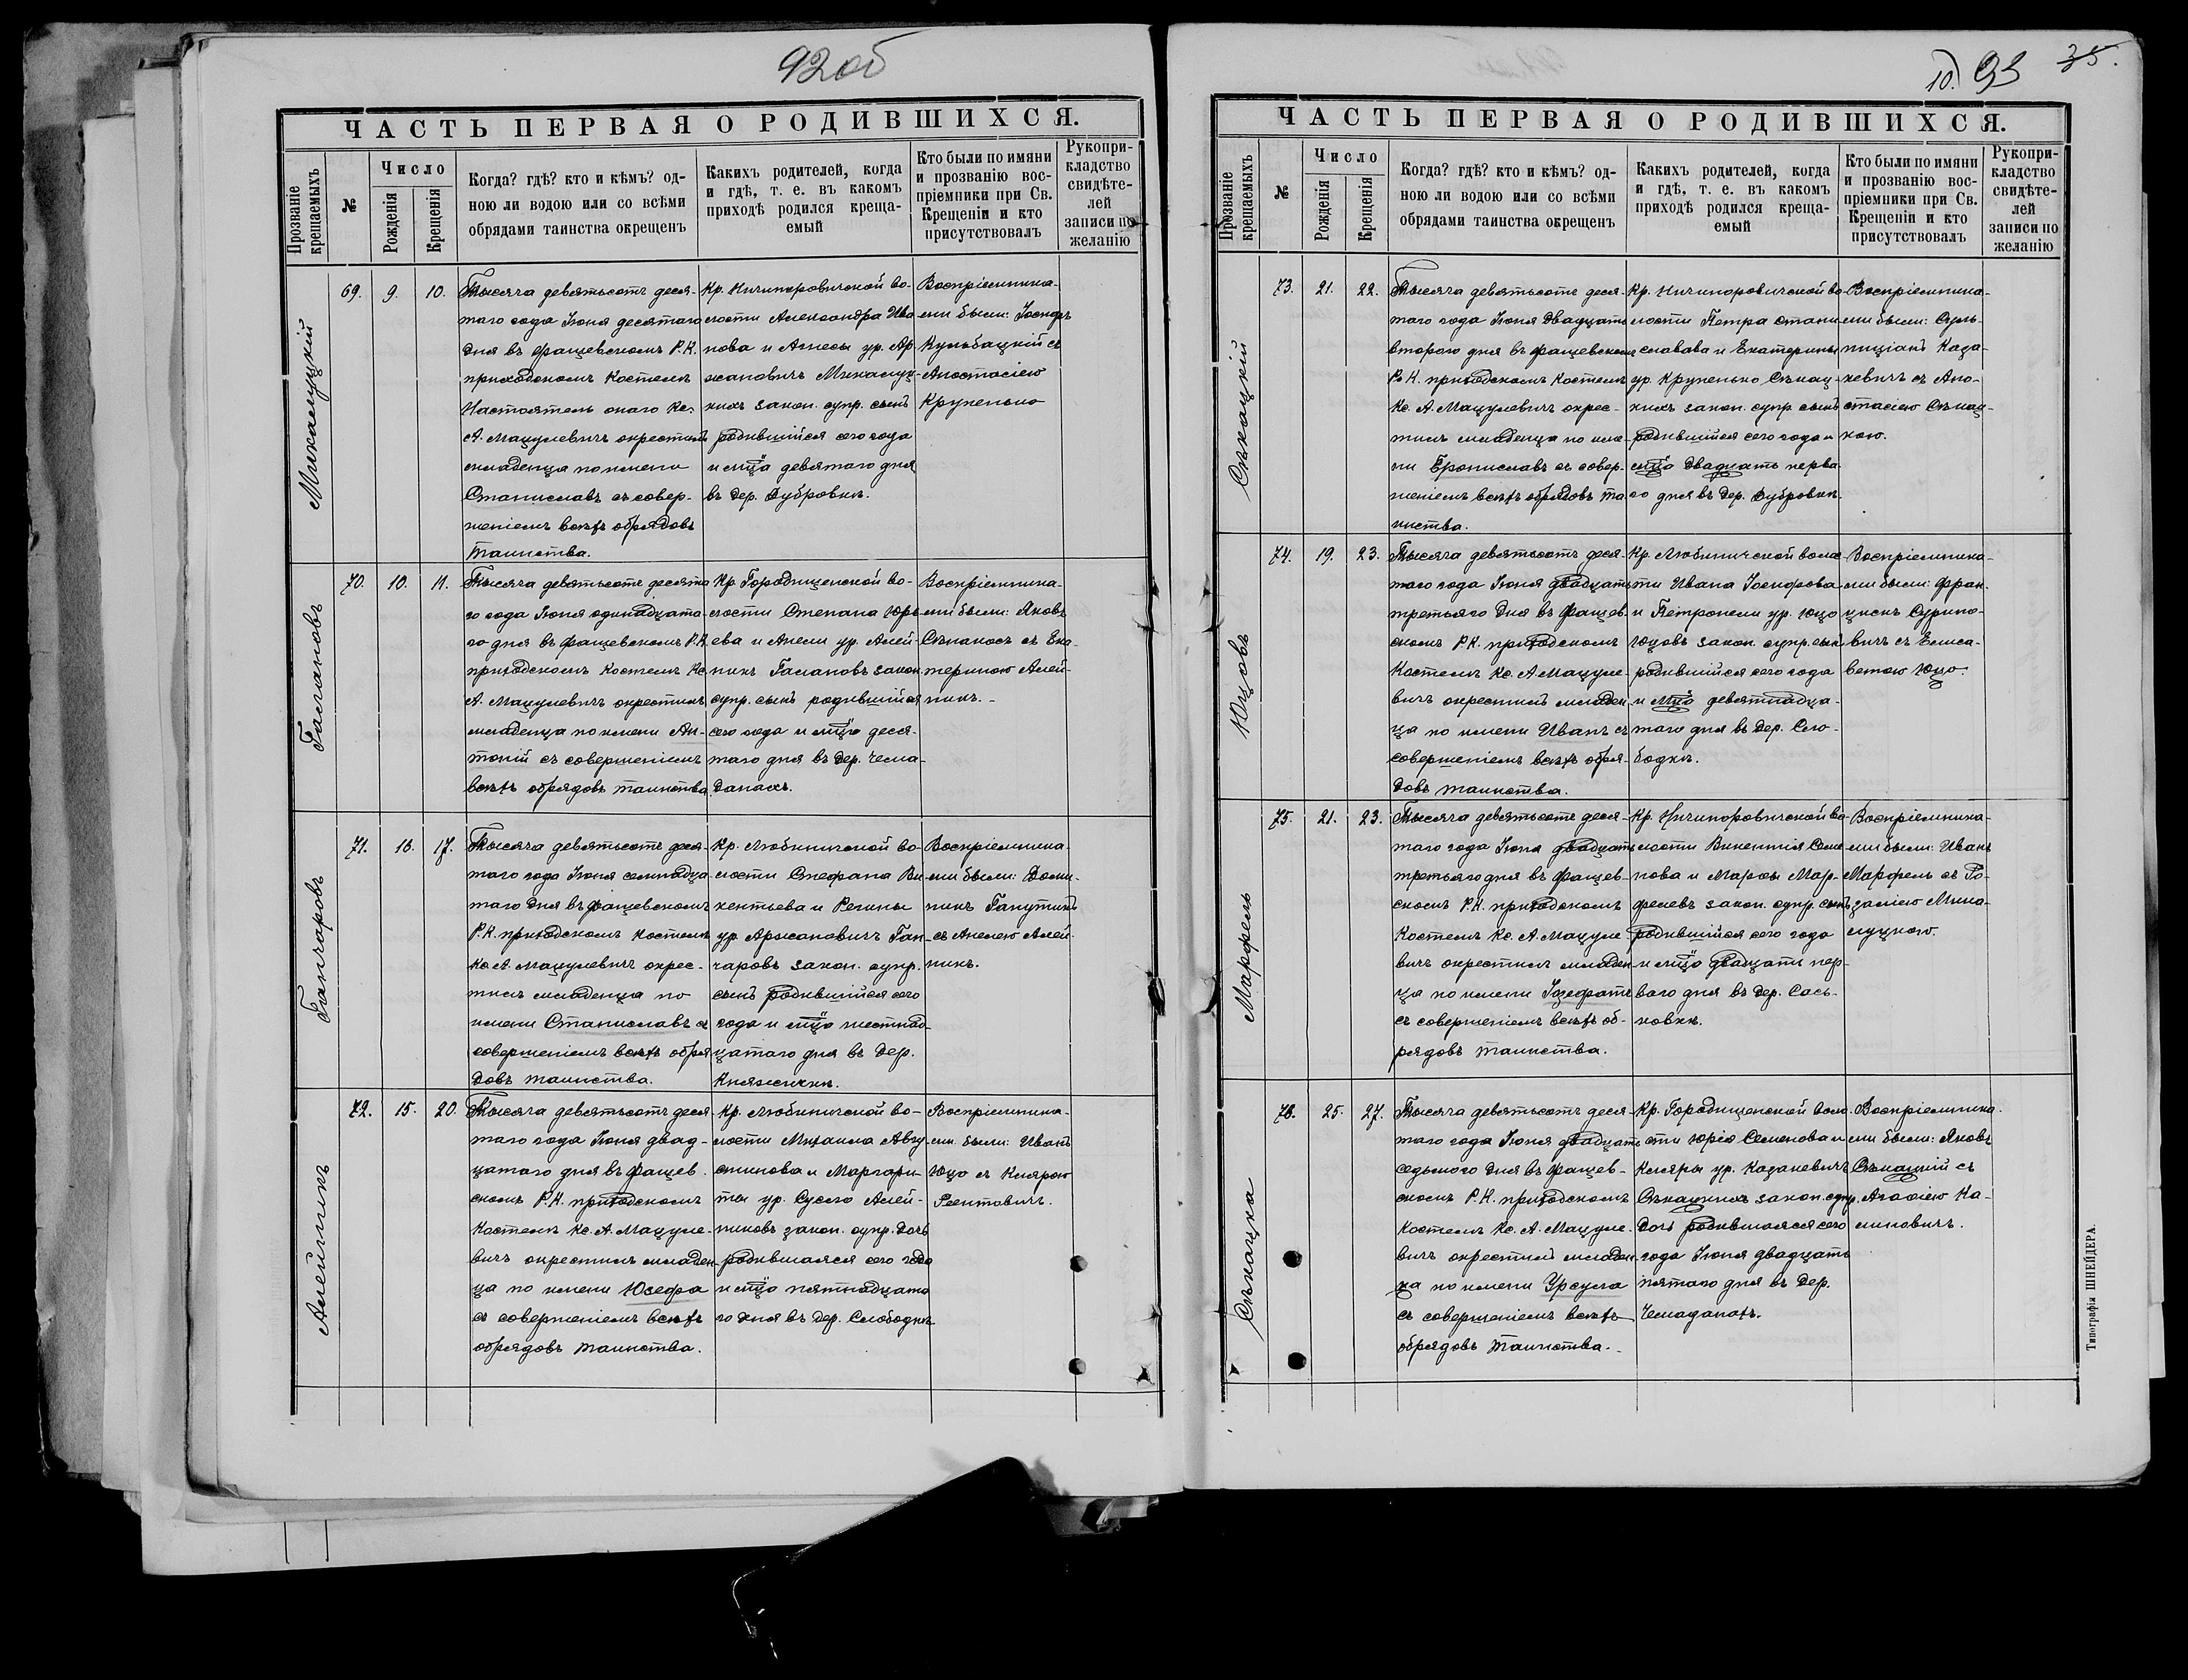 92 об
ЧАСТЬ ПЕРВАЯ О РОДИВШИХСЯ.
Прозваніе крещаемыхъ
№
Число
Рожденія
Крещенія
Когда? гдѣ? кто и кѣмъ? од-
ною ли водою или со всѣми
обрядами таинства окрещенъ
Какихъ родителей, когда
и гдѣ, т. е. въ какомъ
приходѣ родился креща-
емый
Кто были по имяни
и прозванію вос-
пріемники при Св.
Крещеніи и кто
присутствовалъ
Рукопри-
кладство
свидѣте-
лей
записи по
желанію
Микалуцкій
69.
9.
10.
Тысяча девятьсотъ деся-
таго года Іюня десятаго
дня въ Фащевскомъ Р.К.
приходскомъ Костелѣ
Настоятель онаго Кс.
А. Мацулевичъ окрестилъ
младенца по имени
Станиславъ съ совер-
шеніемъ всѣхъ обрядовъ
Таинства.
Кр. Ничипоровичской во-
лости Александра Ива
нова и Агнесы ур. Ар
жановичъ Микалуц-
кихъ закон. супр. сынъ
родившійся сего года
и мѣца девятаго дня
въ дер. Дубровкѣ.
Воспріемника-
ми были: Іосифъ
Кульбацкій съ
Анастасіею
Крупенько
Галановъ
70.
10.
11.
Тысяча девятьсотъ десята
го года Іюня одинадцата-
го дня въ Фащевскомъ Р.К
приходскомъ Костелѣ Кс
А. Мацулевичъ окрестилъ
младенца по имени Ан-
тоній съ совершеніемъ
всѣхъ обрядовъ таинства.
Кр. Городищенской во-
лости Степана Юрь
ева и Анели ур. Алей-
никъ Галановъ закон
супр. сынъ родившійся
сего года и мѣца деся-
таго дня въ дер. Чема-
данахъ.
Воспріемника-
ми были: Яковъ
Сѣканосъ съ Ека
териною Алей-
никъ.
Ганчаровъ
71.
16.
17.
Тысяча девятьсотъ деся-
таго года Іюня семнадца-
таго дня въ Фащевскомъ
Р.К. приходскомъ Костелѣ
Кс А. Мацулевичъ окрес-
тилъ младенца по
имени Станиславъ съ
совершеніемъ всѣхъ обря
довъ таинства.
Кр. Любиничской во-
лости Стефана Ви-
кентьева и Регины
ур. Аржановичъ Ган-
чаровъ закон. супр.
сынъ родившійся сего
года и мѣца шестнад-
цатаго дня въ дер.
Княжичкѣ.
Воспріемника-
ми были: Доми-
никъ Гапутинъ
съ Анелею Алей-
никъ.
Алейникъ
72.
15.
20.
Тысяча девятьсотъ деся
таго года Іюня двад-
цатаго дня въ Фащев-
скомъ Р.К. приходскомъ
Костелѣ Кс. А. Мацуле-
вичъ окрестилъ младен-
ца по имени Юзефа
съ совершеніемъ всѣхъ
обрядовъ таинства.
Кр. Любиничской во-
лости Михаила Авгу
стинова и Маргари-
ты ур. Сусло Алей-
никовъ закон. супр. дочь
родившаяся сего года
и мѣца пятнадцата
го дня въ дер. Слободкѣ
Воспріемника-
ми были: Иванъ
Юцо съ Клярою
Рентовичъ.
10) 93 35.
ЧАСТЬ ПЕРВАЯ О РОДИВШИХСЯ.
Прозваніе крещаемыхъ
№
Число
Рожденія
Крещенія
Когда? гдѣ? кто и кѣмъ? од-
ною ли водою или со всѣми
обрядами таинства окрещенъ
Какихъ родителей, когда
и гдѣ, т. е. въ какомъ
приходѣ родился креща-
емый
Кто были по имяни
и прозванію вос-
пріемники при Св.
Крещеніи и кто
присутствовалъ
Рукопри-
кладство
свидѣте-
лей
записи по
желанію
Сѣкацкій
73.
21.
22.
Тысяча девятьсотъ деся-
таго года Іюня двадцать
второго дня въ Фащевском
Р. К. приходскомъ Костелѣ
Кс. А. Мацулевичъ окрес-
тилъ младенца по име-
ни Брониславъ съ совер-
шеніемъ всѣхъ обрядовъ та
инства.
Кр. Ничипоровичской во
лости Петра Стани
славава и Екатерины
ур. Крупенько Сѣкац-
кихъ закон. супр. сынъ
родившійся сего года и
мѣца двадцать перва
го дня въ дер. Дубровкѣ.
Воспріемника-
ми были: Суль-
пиціанъ Каза-
кевичъ съ Ана-
стасіею Сѣкац-
кою.
Юцовъ
74.
19.
23.
Тысяча девятьсотъ деся-
таго года Іюня двадцать
третьяго дня въ Фащев-
скомъ Р.К. приходскомъ
Костелѣ Кс. А. Мацуле-
вичъ окрестилъ младен
ца по имени Иванъ съ
совершеніемъ всѣхъ обря-
довъ таинства.
Кр. Любиничской волос
ти Ивана Іосифова
и Петронели ур. Юцо
Юцовъ закон. супр. сынъ
родившійся сего года
и мѣца девятнадца-
таго дня въ дер. Сло-
бодкѣ.
Воспріемника-
ми были: Фран-
цискъ Сурино-
вичъ съ Елиса-
ветою Юцо.
Марфель
75.
21.
23.
Тысяча девятьсотъ деся-
таго года Іюня двадцать
третьяго дня въ Фащев-
скомъ Р.К. приходскомъ
Костелѣ Кс. А. Мацуле-
вичъ окрестилъ младен-
ца по имени Іозефатъ
съ совершеніемъ всѣхъ об-
рядовъ таинства.
Кр. Ничипоровичской во-
лости Викентія Семе
нова и Марѳы Мар-
фелевъ закон. супр. сынъ
родившійся сего года
и мѣца двадцать пер-
ваго дня въ дер. Сась-
ковкѣ.
Воспріемника-
ми были: Иванъ
Марфель съ Ро-
заліею Мика-
луцкою.
Сѣкацка
76.
25.
27.
Тысяча девятьсотъ деся
таго года Іюня двадцать
седьмого дня въ Фащев-
скомъ Р.К. приходскомъ
Костелѣ Кс. А. Мацуле-
вичъ окрестилъ младен-
ца по имени Урсула
съ совершеніемъ всѣхъ
обрядовъ таинства.
Кр. Городищенской воло-
сти Юрія Семенова и
Кляры ур. Казакевичъ
Сѣкацкихъ закон. супр.
дочь родившаяся сего
года Іюня двадцать
пятаго дня въ дер.
Чемаданахъ.
Воспріемника-
ми были: Яковъ
Сѣкацкій съ
Агафіею Ка-
линовичъ.
Типографія ШНЕЙДЕРА.